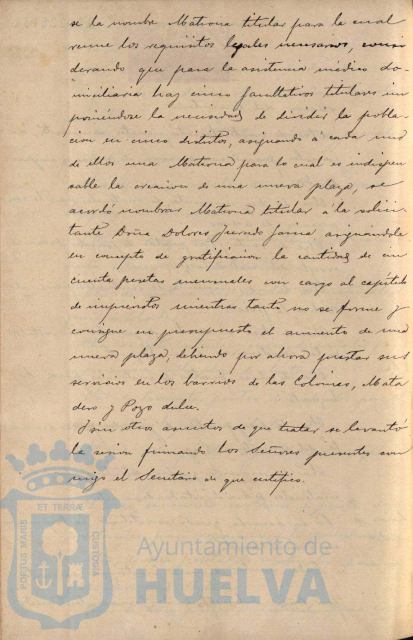 se la nombre Matrona titular para la cual
reune los requisitos legales necesarios, consi
derando que para la asistencia médica do-
miciliaria hay cinco facultativos titulares im
poniéndose la necesidad de dividir la pobla-
cion en cinco distritos, asignando á cada uno
de ellos una Matrona, para lo cual es indispen
sable la creacion de una nueva plaza, se
acordó nombrar Matrona titular á la solici-
tante Doña Dolores Jurado asignandole
en concepto de gratificacion la cantidad de cin
cuenta pesetas mensuales con cargo al capítulo
de imprevistos mientras tanto no se forme y
consigne en presupuesto el aumento de una
nueva plaza, debiendo por ahora prestar sus
servicios en los barrios de las Colonias, Mata
dero y Pozo dulce.
Y sin otros asuntos de que tratar se levantó
la sesion firmando los Señores presentes con
migo el Secretario de que certifico.
PORTUS MARIS
ET TERRAE
CUSTODIA
Ayuntamiento de
HUELVA